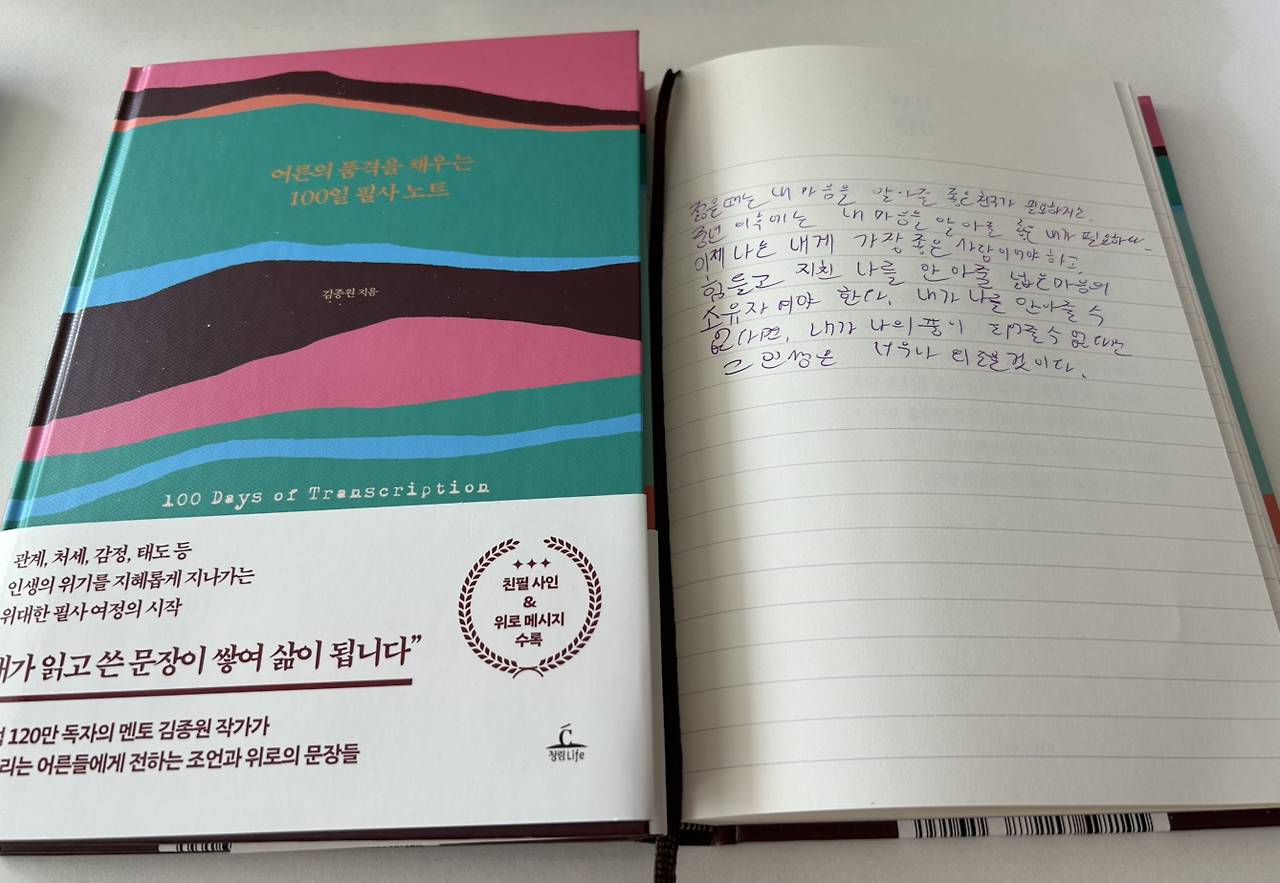 어른의 품격을 채우는
100일 필사 노트
김종원 지음
100 Days of Transcription
관계, 처세, 감정, 태도 등
인생의 위기를 지혜롭게 지나가는
위대한 필사 여정의 시작
친필 사인
&
위로 메시지
수록
읽고 쓴 문장이 쌓여 삶이 됩니다”
120만 독자의 멘토 김종원 작가가
어른들에게 전하는 조언과 위로의 문장들
C
청림Life
젊을때는 내 마음을 알아줄 좋은 친구가 필요하지만,
중년 이후에는 내 마음을 알아줄 내가 필요하다.
이제 나는 내게 가장 좋은 사람이어야 하고,
힘들고 지친 나를 안아줄 넓은 마음의
소유자여야 한다. 내가 나를 안아줄 수
없다면, 내가 나의 품이 되어줄 수 없다면
그 인생은 너무나